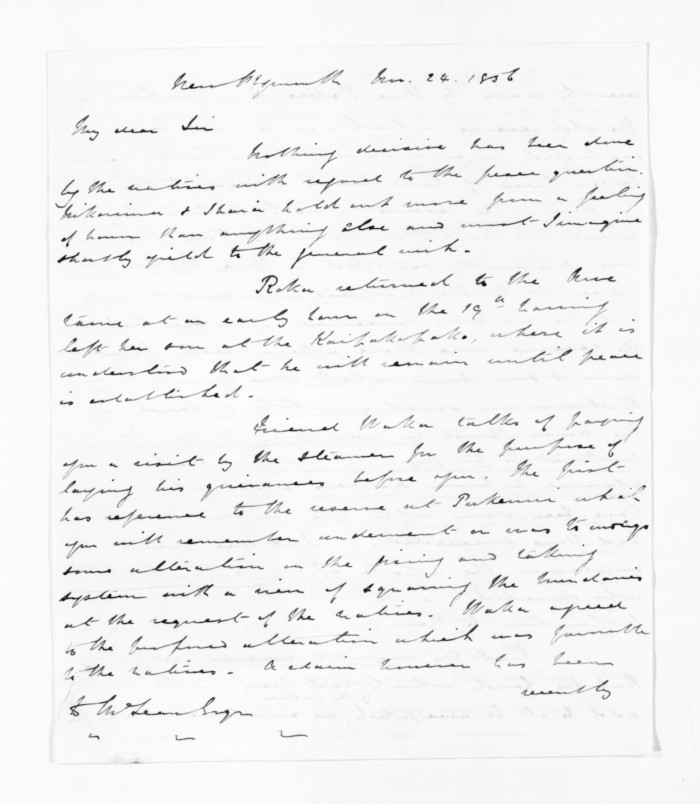 New Plymouth Nov. 24. 1856
My dear Sir
Nothing decisive has been done
by the natives with regard to the peace question.
& Ihaia hold out more from a feeling
of honor than anything else and must I imagine
shortly yield to the general wish.
Roka returned to the
at an early hour on the 19th having
left her son at the Kaipakopako, where it is
understood that he will remain until peace
is established.
Friend Waka talks of paying
you a visit by the Steamer for the purpose of
laying his grievances before you. The first
has reference to the reserve at Pukenui which
you will remember underwent or was to undergo
some alteration in the giving and taking
system with a view of squaring the boundaries
at the request of the natives. Waka agreed
to the proposed alteration which was favorable
to the natives. A claim however has been
recently
D McLean Esqre